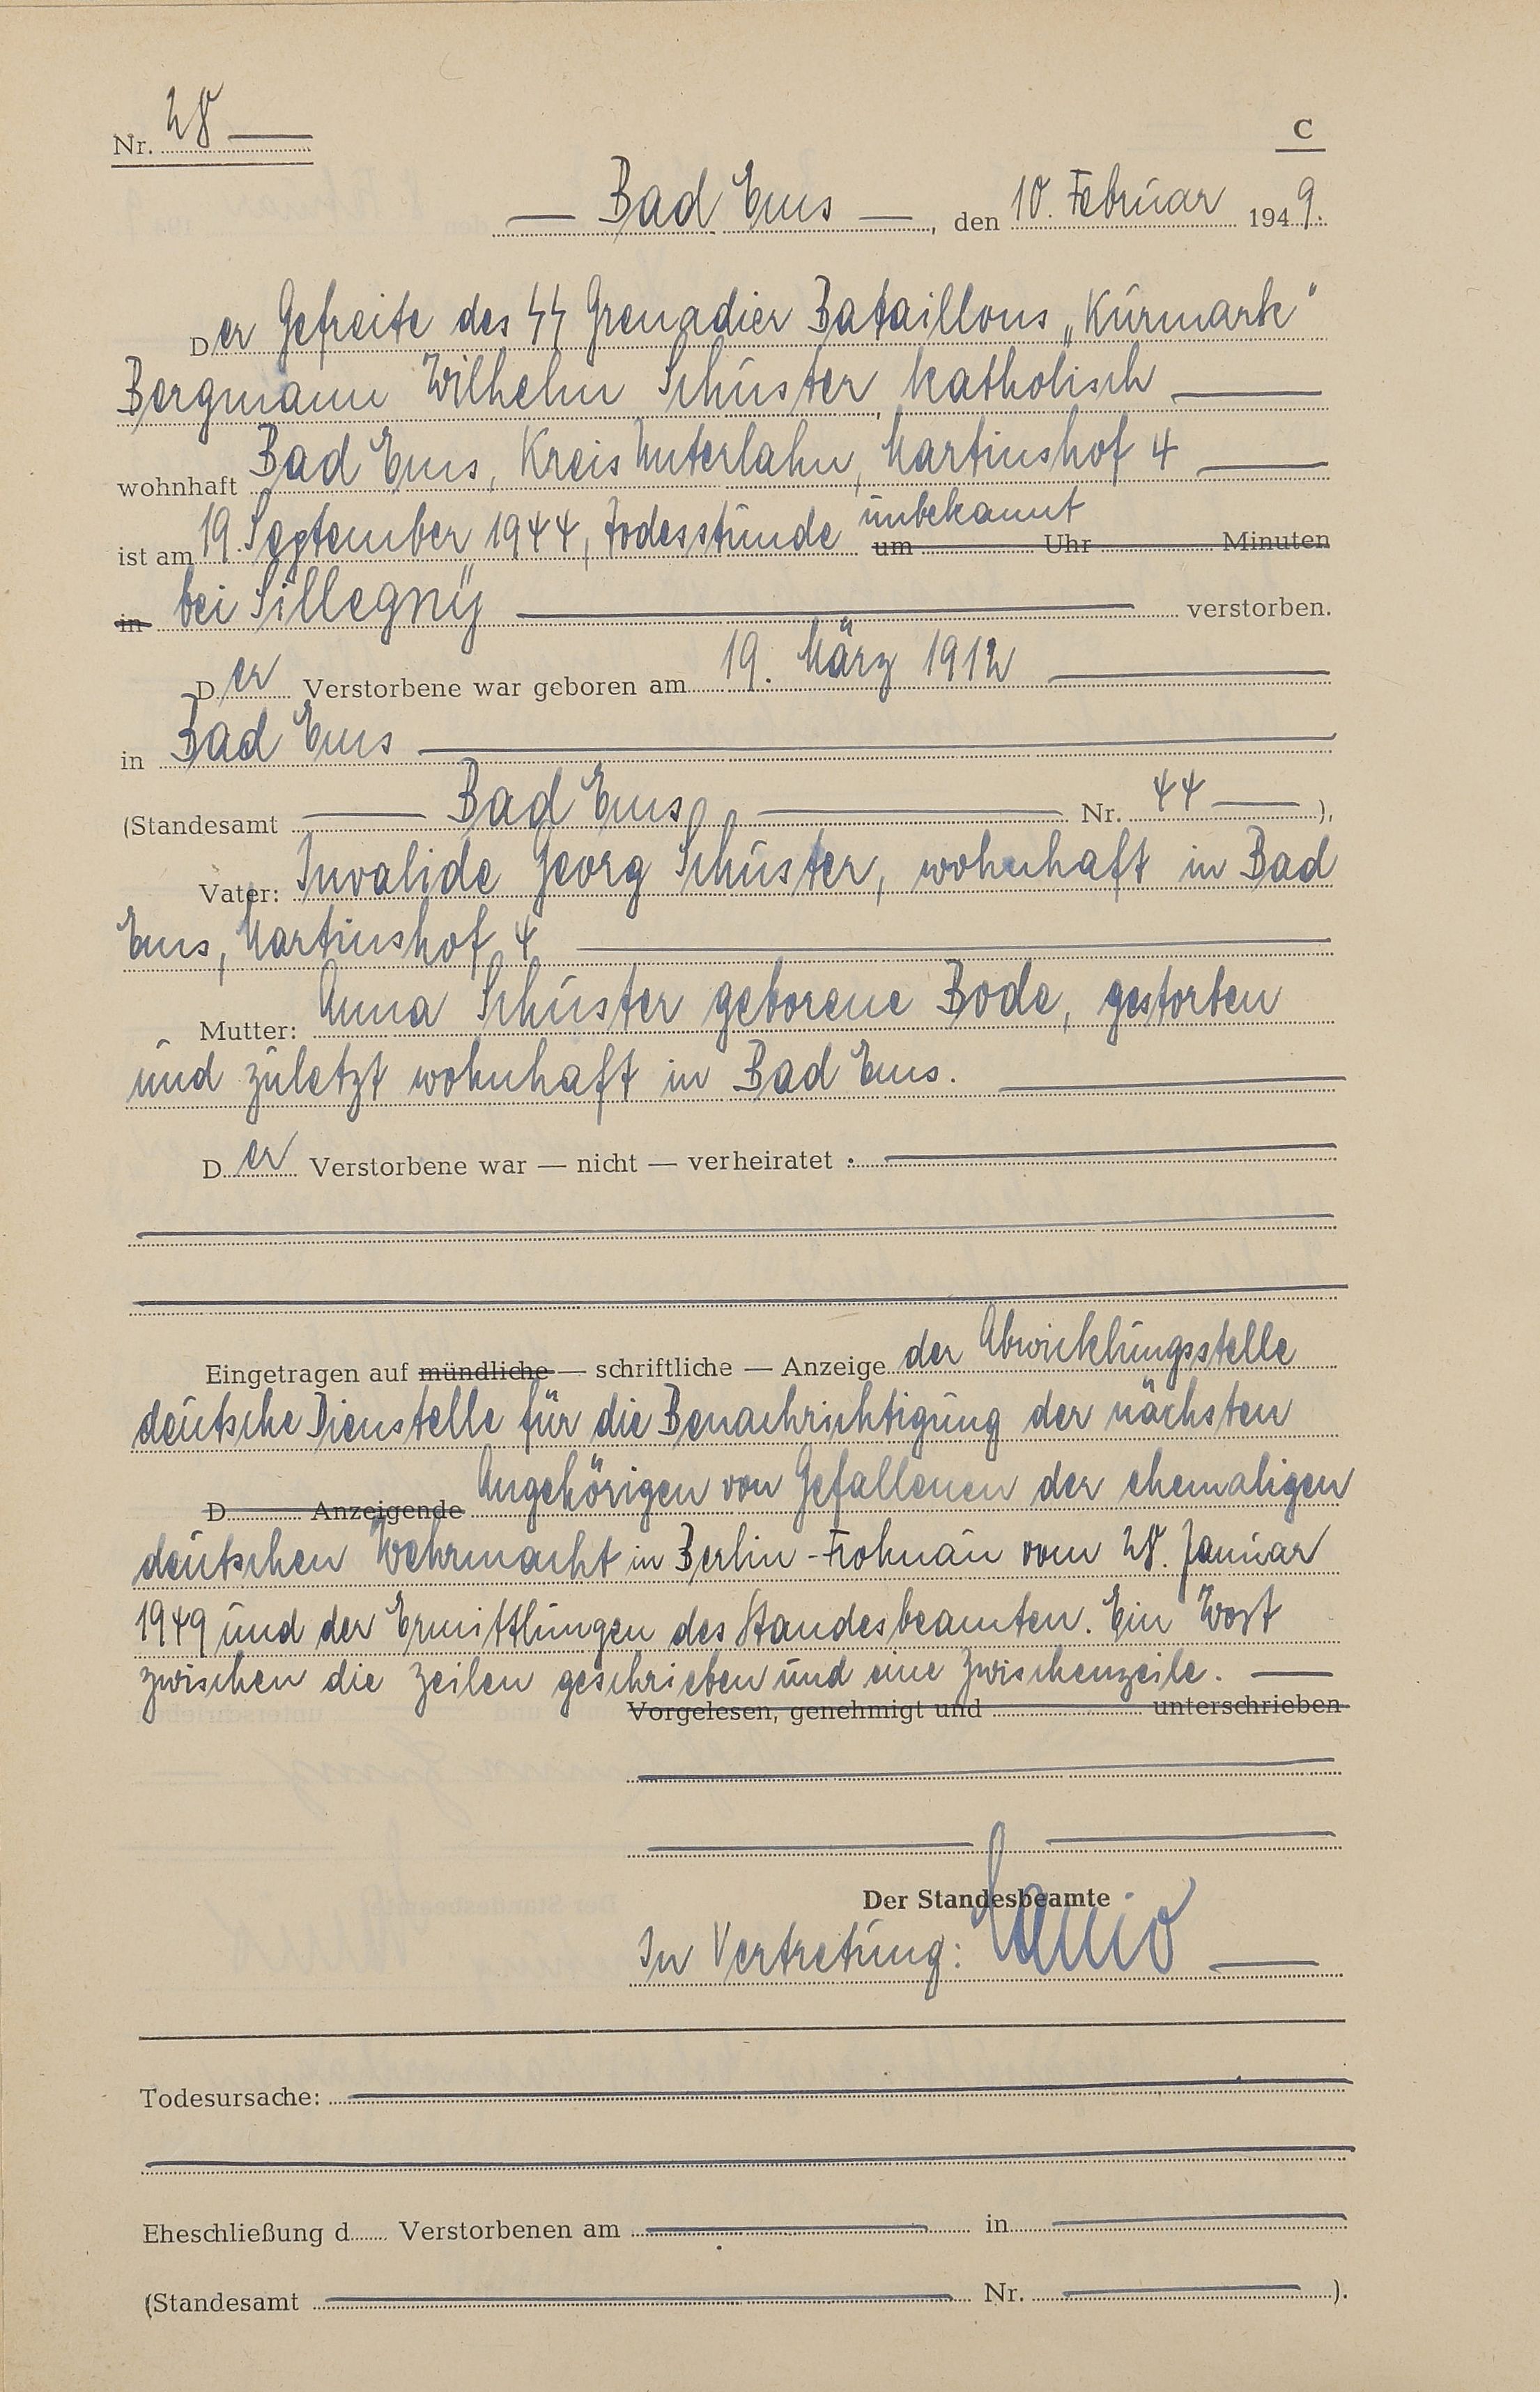 Nr. 28
C
Bad Ems, den 10. Februar 1949.
Der Gefreite des SS Grenadier Bataillons „Kurmark"
Bergmann Wilhelm Schuster, katholisch
wohnhaft Bad Ems, Kreis Unterlahn, Martinshof 4
unbekannt
ist am 19. September 1944, Todesstunde um Uhr Minuten
in bei Sillegny verstorben.
Der Verstorbene war geboren am 19. März 1912
in Bad Ems
(Standesamt Bad Ems Nr. 44 ),
Vater: Invalide Georg Schuster, wohnhaft in Bad
Ems, Martinshof 4
Mutter: Anna Schuster geborene Bode, gestorben
und zuletzt wohnhaft in Bad Ems.
Der Verstorbene war — nicht — verheiratet .
Eingetragen auf mündliche — schriftliche — Anzeige der Abwicklungsstelle
deutsche Dienstelle für die Benachrichtigung der nächsten
D Anzeigende Angehörigen von Gefallenen der ehemaligen
deutschen Wehrmacht in Berlin-Frohnau vom 28. Januar
1949 und der Ermittlungen des Standesbeamten. Ein Wort
zwischen die Zeilen geschrieben und eine Zwischenzeile.
Vorgelesen, genehmigt und unterschrieben
Der Standesbeamte
In Vertretung:
Todesursache:
Eheschließung d Verstorbenen am in
(Standesamt Nr. ).